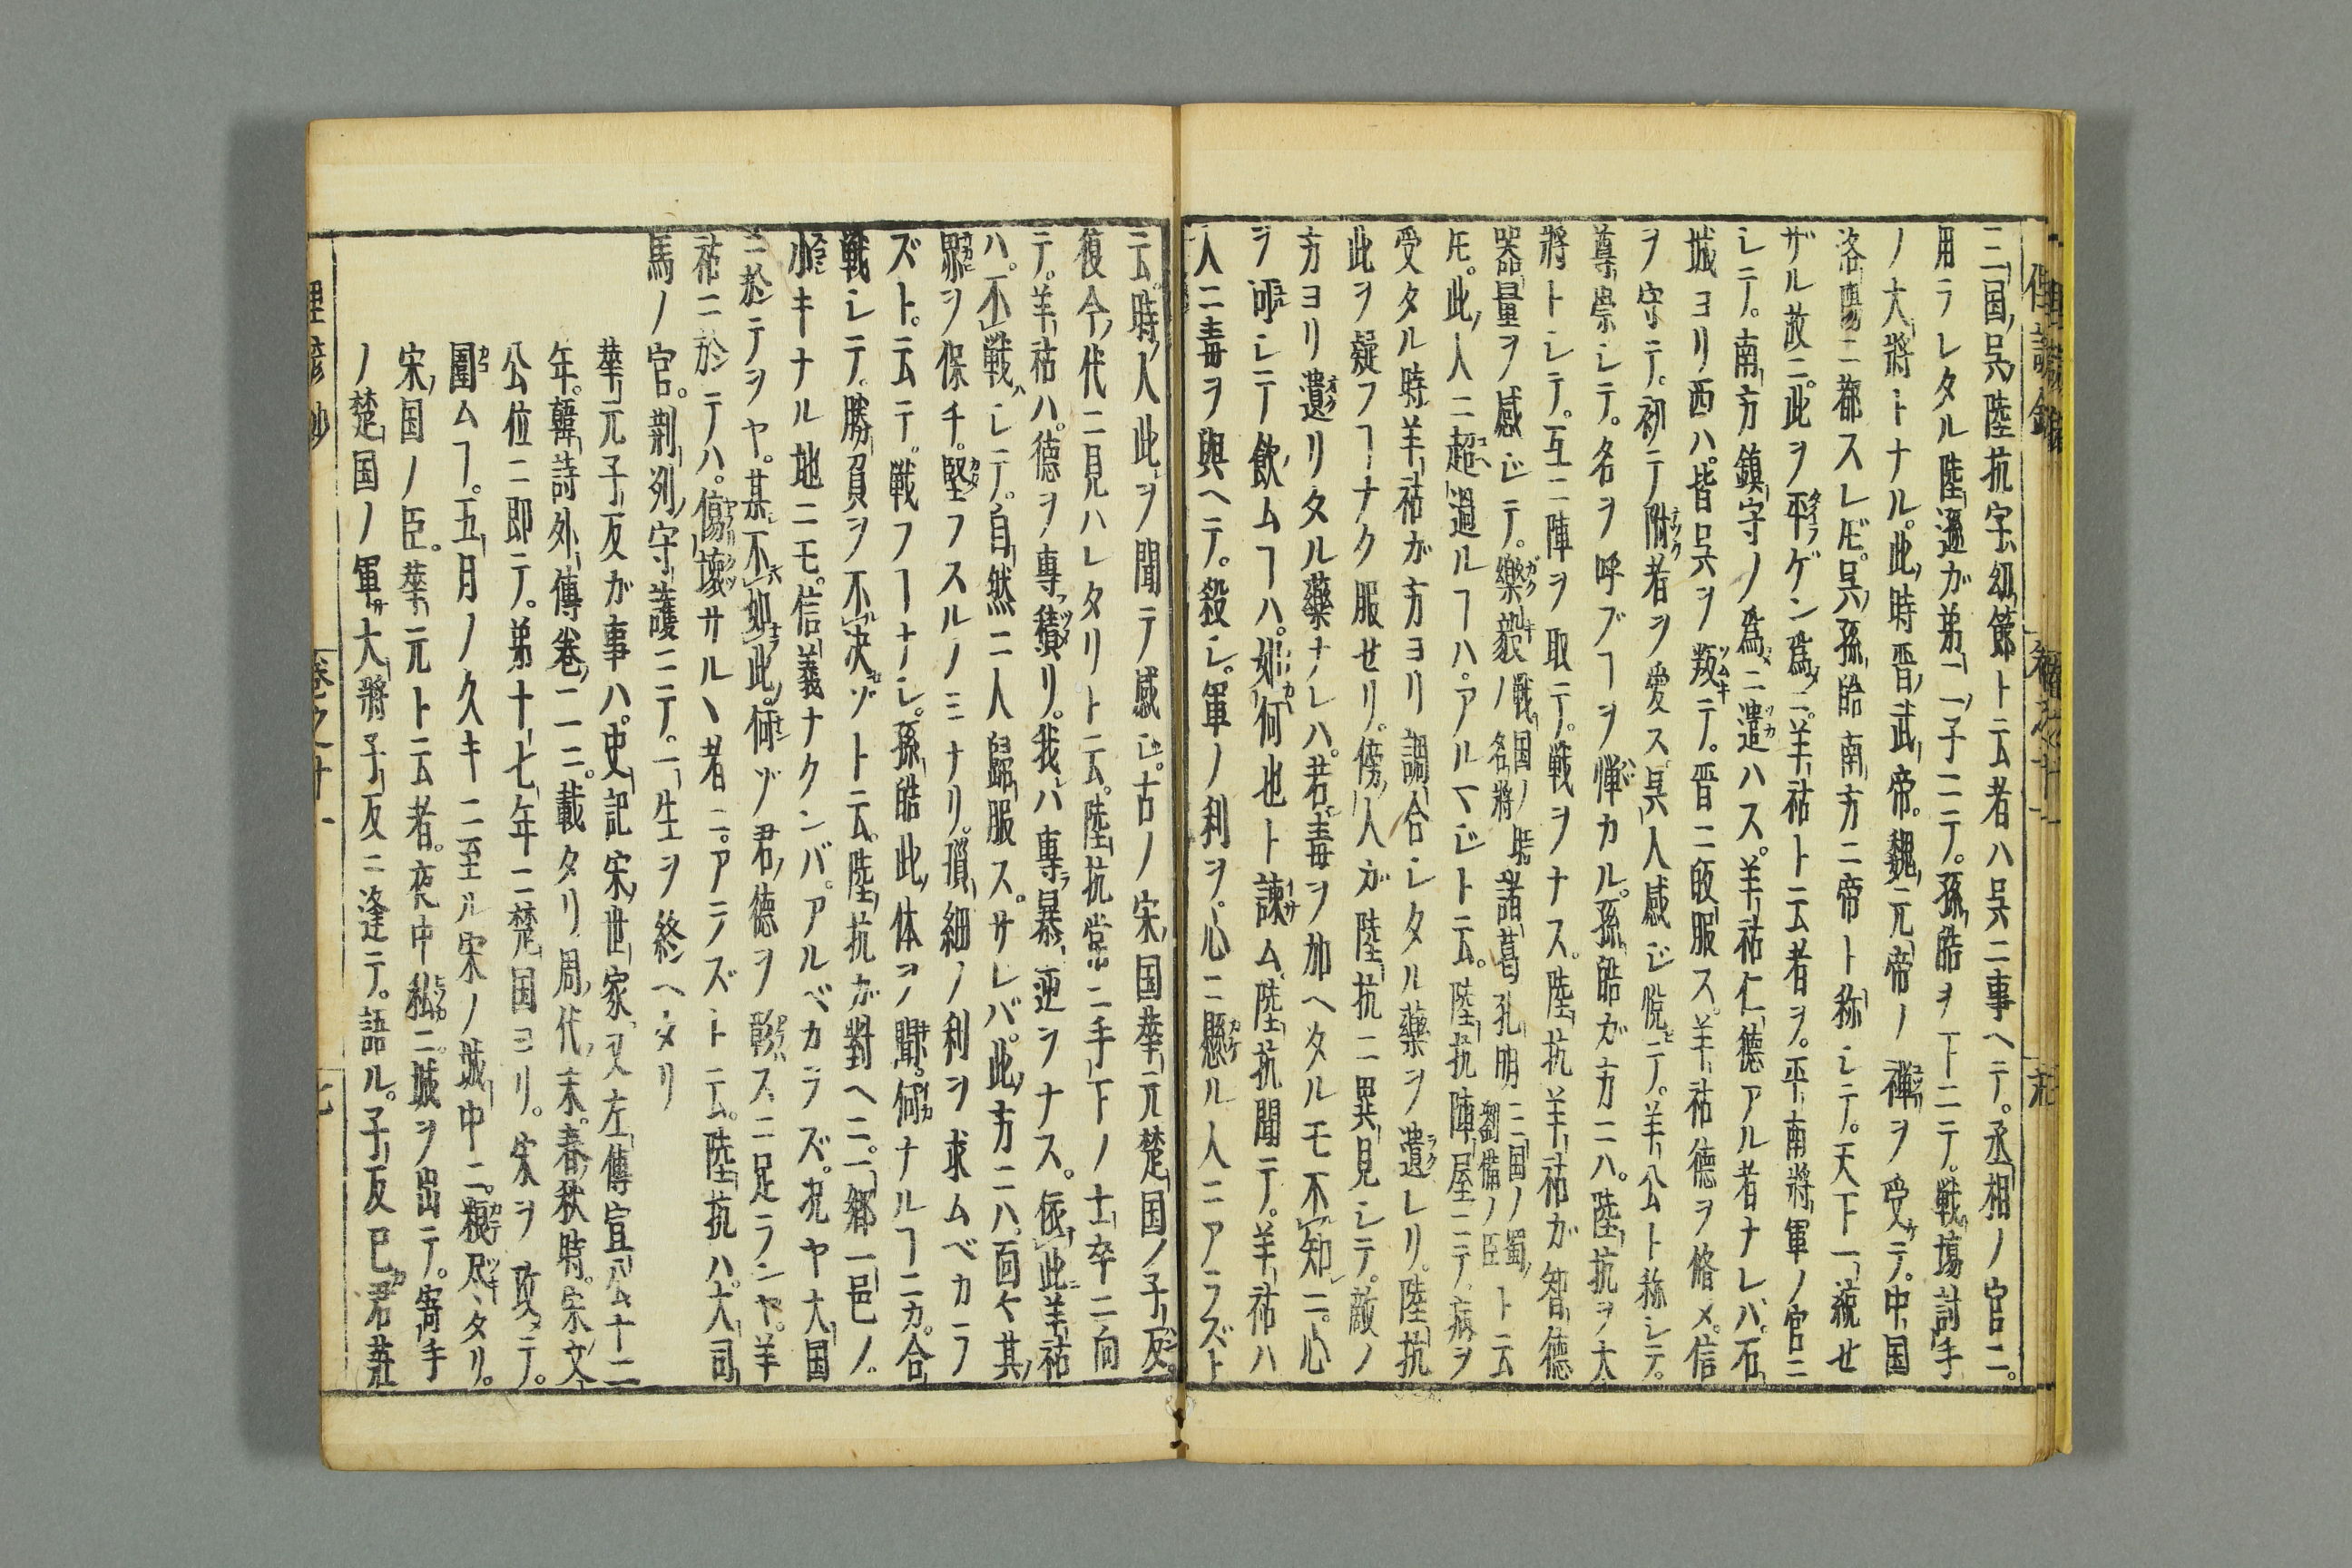 三国呉陸抗字幼節ト云者ハ呉ニ事ヘテ。丞相ノ官ニ。
用ラレタル陸遜ガ弟二ノ子ニテ。孫皓ヲ下ニテ。戦場討手
ノ大將トナル。此時晋武帝。魏元帝ノ禪ヲ受テ。中国
洛陽ニ都スレ𪜈。呉孫皓南方ニ帝ト称シテ。天下一統セ
ザル故ニ。此ヲ平ゲン爲ニ。羊祜ト云者ヲ。平南將軍ノ官ニ
シテ。南方鎮守ノ爲ニ遣ハス。羊祜仁德アル者ナレバ。石
城ヨリ西ハ。皆呉ヲ叛テ。晋ニ皈服ス。羊祜德ヲ脩メ。信
ヲ守テ。初テ附者ヲ愛ス。呉人感ジ悅テ。羊公ト称シテ。
尊崇シテ。名ヲ呼ブヿヲ憚カル。孫皓ガ方ニハ。陸抗ヲ大
將トシテ。互ニ陣ヲ取テ。戦ヲナス。陸抗羊祜ガ智德
器量ヲ感ジテ。樂毅ノ戦国ノ名將諸葛孔明三国ノ蜀劉備ノ臣ト云
𪜈。此人ニ超過ルヿハ。アルマジト云。陸抗陣屋ニテ病ヲ
受タル時羊祜ガ方ヨリ調合シタル藥ヲ遺レリ。陸抗
此ヲ疑フヿナク服セリ。傍人ガ陸抗ニ異見シテ。敵ノ
方ヨリ遺リタル藥ナレハ。若毒ヲ加ヘタルモ不知ニ。心
ヲ迎シテ飲ムヿハ。如何也ト諫ム。陸抗聞テ。羊祜ハ
人ニ毒ヲ與ヘテ。殺シ。軍ノ利ヲ。心ニ懸ル人ニアラズト
云。時人此ヲ聞テ感ジ。古ノ宋国華元楚国ノ子反。
復今代ニ見ハレタリト云。陸抗常ニ手下ノ士卒ニ向
テ。羊祜ハ。德ヲ專積リ。我ハ專暴逆ヲナス。依此羊祜
ハ。不戦シテ。自然ニ人歸服ス。サレバ。此方ニハ。面々其
界ヲ保チ。堅フスルノミナリ。瑣細ノ利ヲ求ムベカラ
ズト。云テ。戦フヿナシ。孫皓此体ヲ聞。何ナルヿニカ。合
戦シテ。勝負ヲ不决ゾト云。陸抗ガ對ヘニ。一鄕一邑ノ
小キナル地ニモ。信義ナクンバ。アルベカラズ。况ヤ大国
ニ於テヲヤ。某不如此。何ゾ君德ヲ彰スニ足ランヤ。羊
祜ニ於テハ。傷壞サルヽ者ニ。アラズト云。陸抗ハ。大司
馬ノ官。荊州守護ニテ。一生ヲ終ヘタリ
華元子反ガ事ハ。史記宋世家又左傳宣公十二
年。韓詩外傳卷二ニ。載タリ周代末。春秋時。宋文
公位ニ即テ。第十七年ニ楚国ヨリ。宋ヲ攻テ。
圍ムヿ。五月ノ久キニ至ル宋ノ城中ニ。粮尽タリ。
宋国ノ臣。華元ト云者。夜中私ニ。城ヲ出テ。寄手
ノ楚国ノ軍大將子反ニ逢テ。語ル。子反已君莊
卷之十一
七